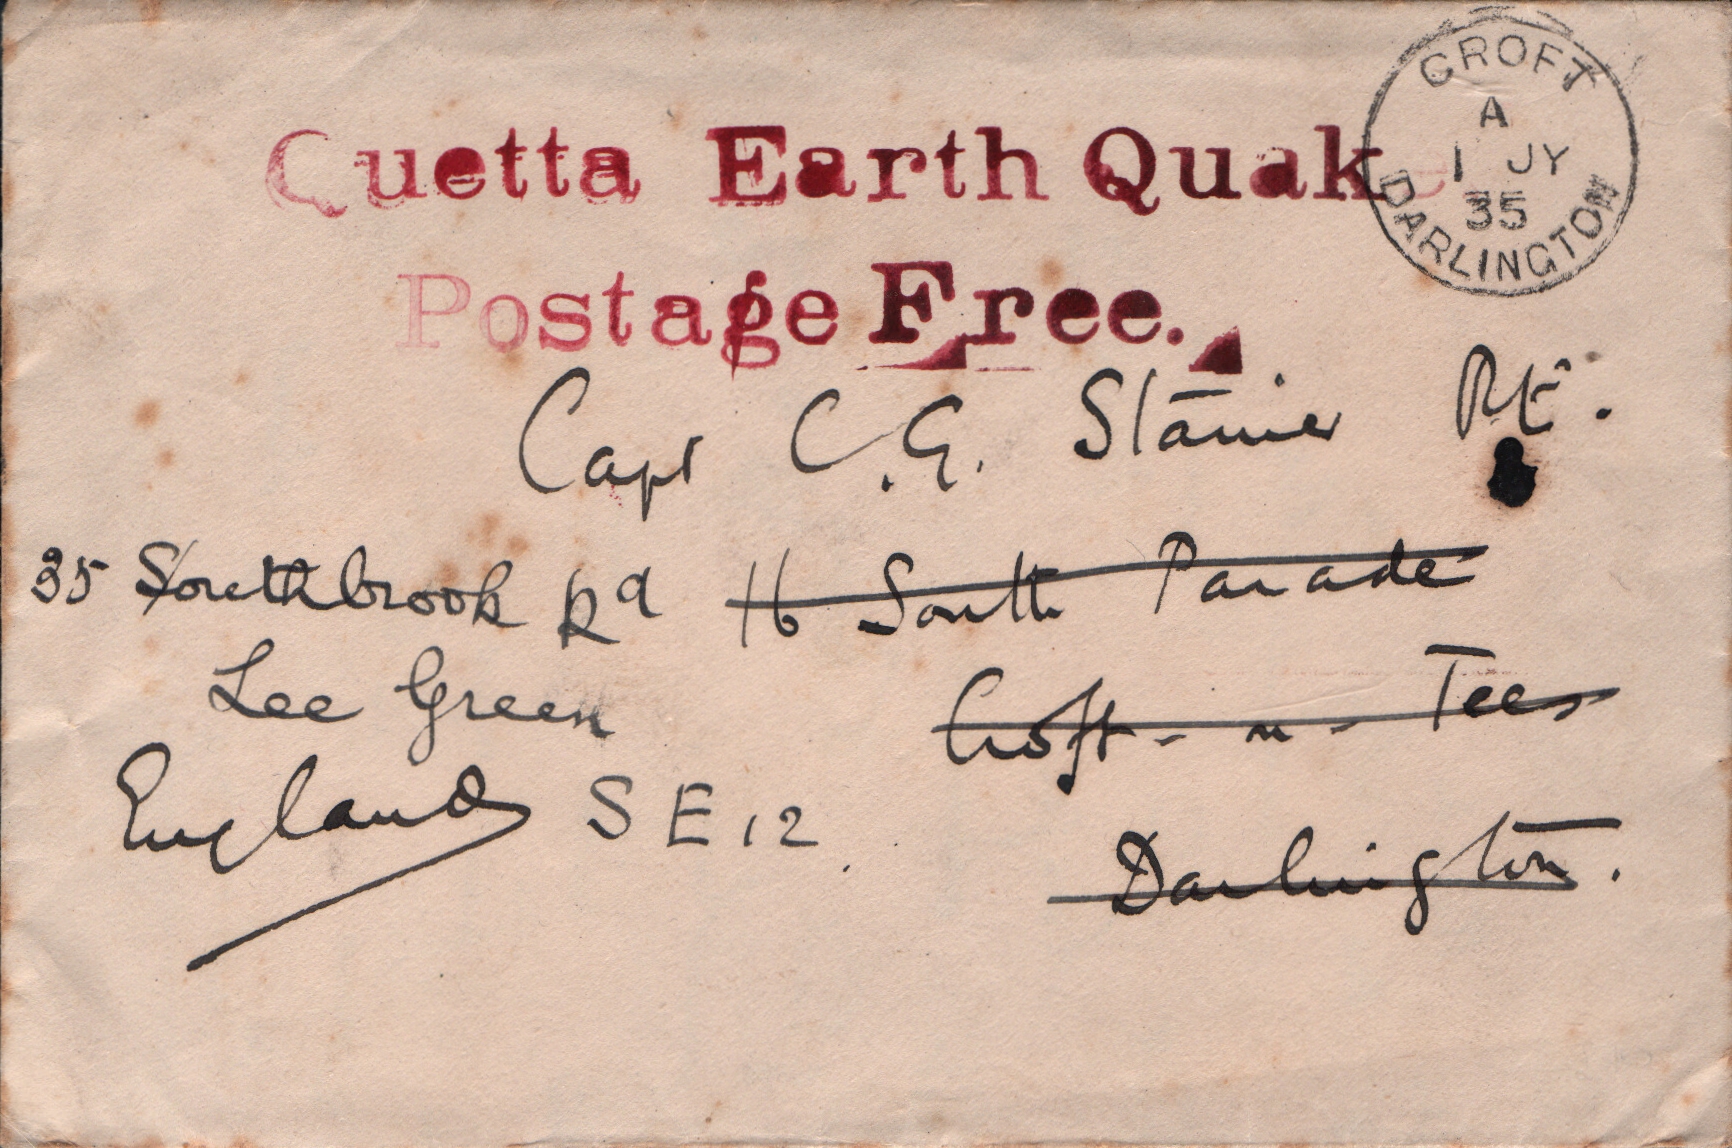 Quetta Earth Quake
Postage Free.
CROFT
A
1 JY
35
DARLINGTON
Capt C.G. Stanier R.E.
35 Southbrook Rd
Lee Green
England SE 12.
16 South Parade
Croft-on-Tees
Darlington.